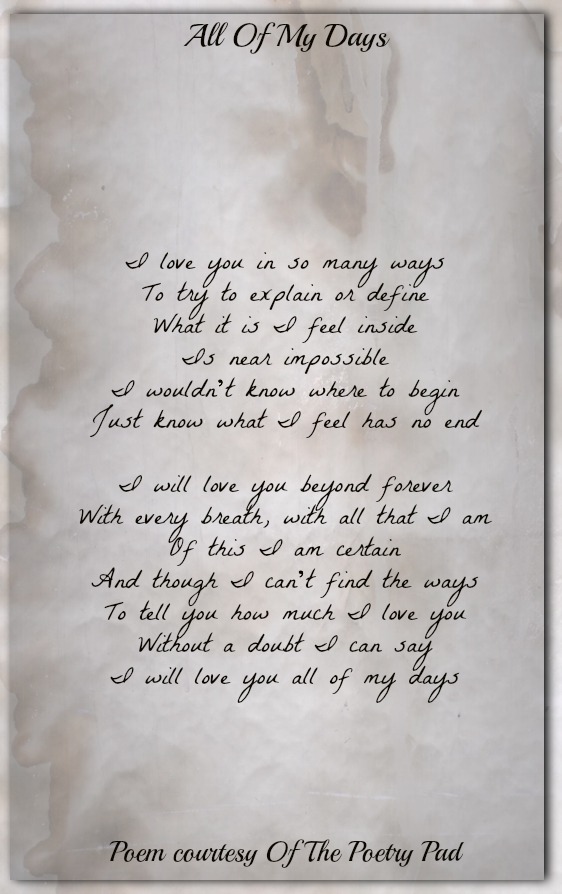 All Of My Days
I love you in so many ways
To try to explain or define
What it is I feel inside
Is near impossible
I wouldn't know where to begin
Just know what I feel has no end
I will love you beyond forever
With every breath, with all that I am
Of this I am certain
And though I can't find the ways
To tell you how much I love you
Without a doubt I can say
I will love you all of my days
Poem courtesy Of The Poetry Pad